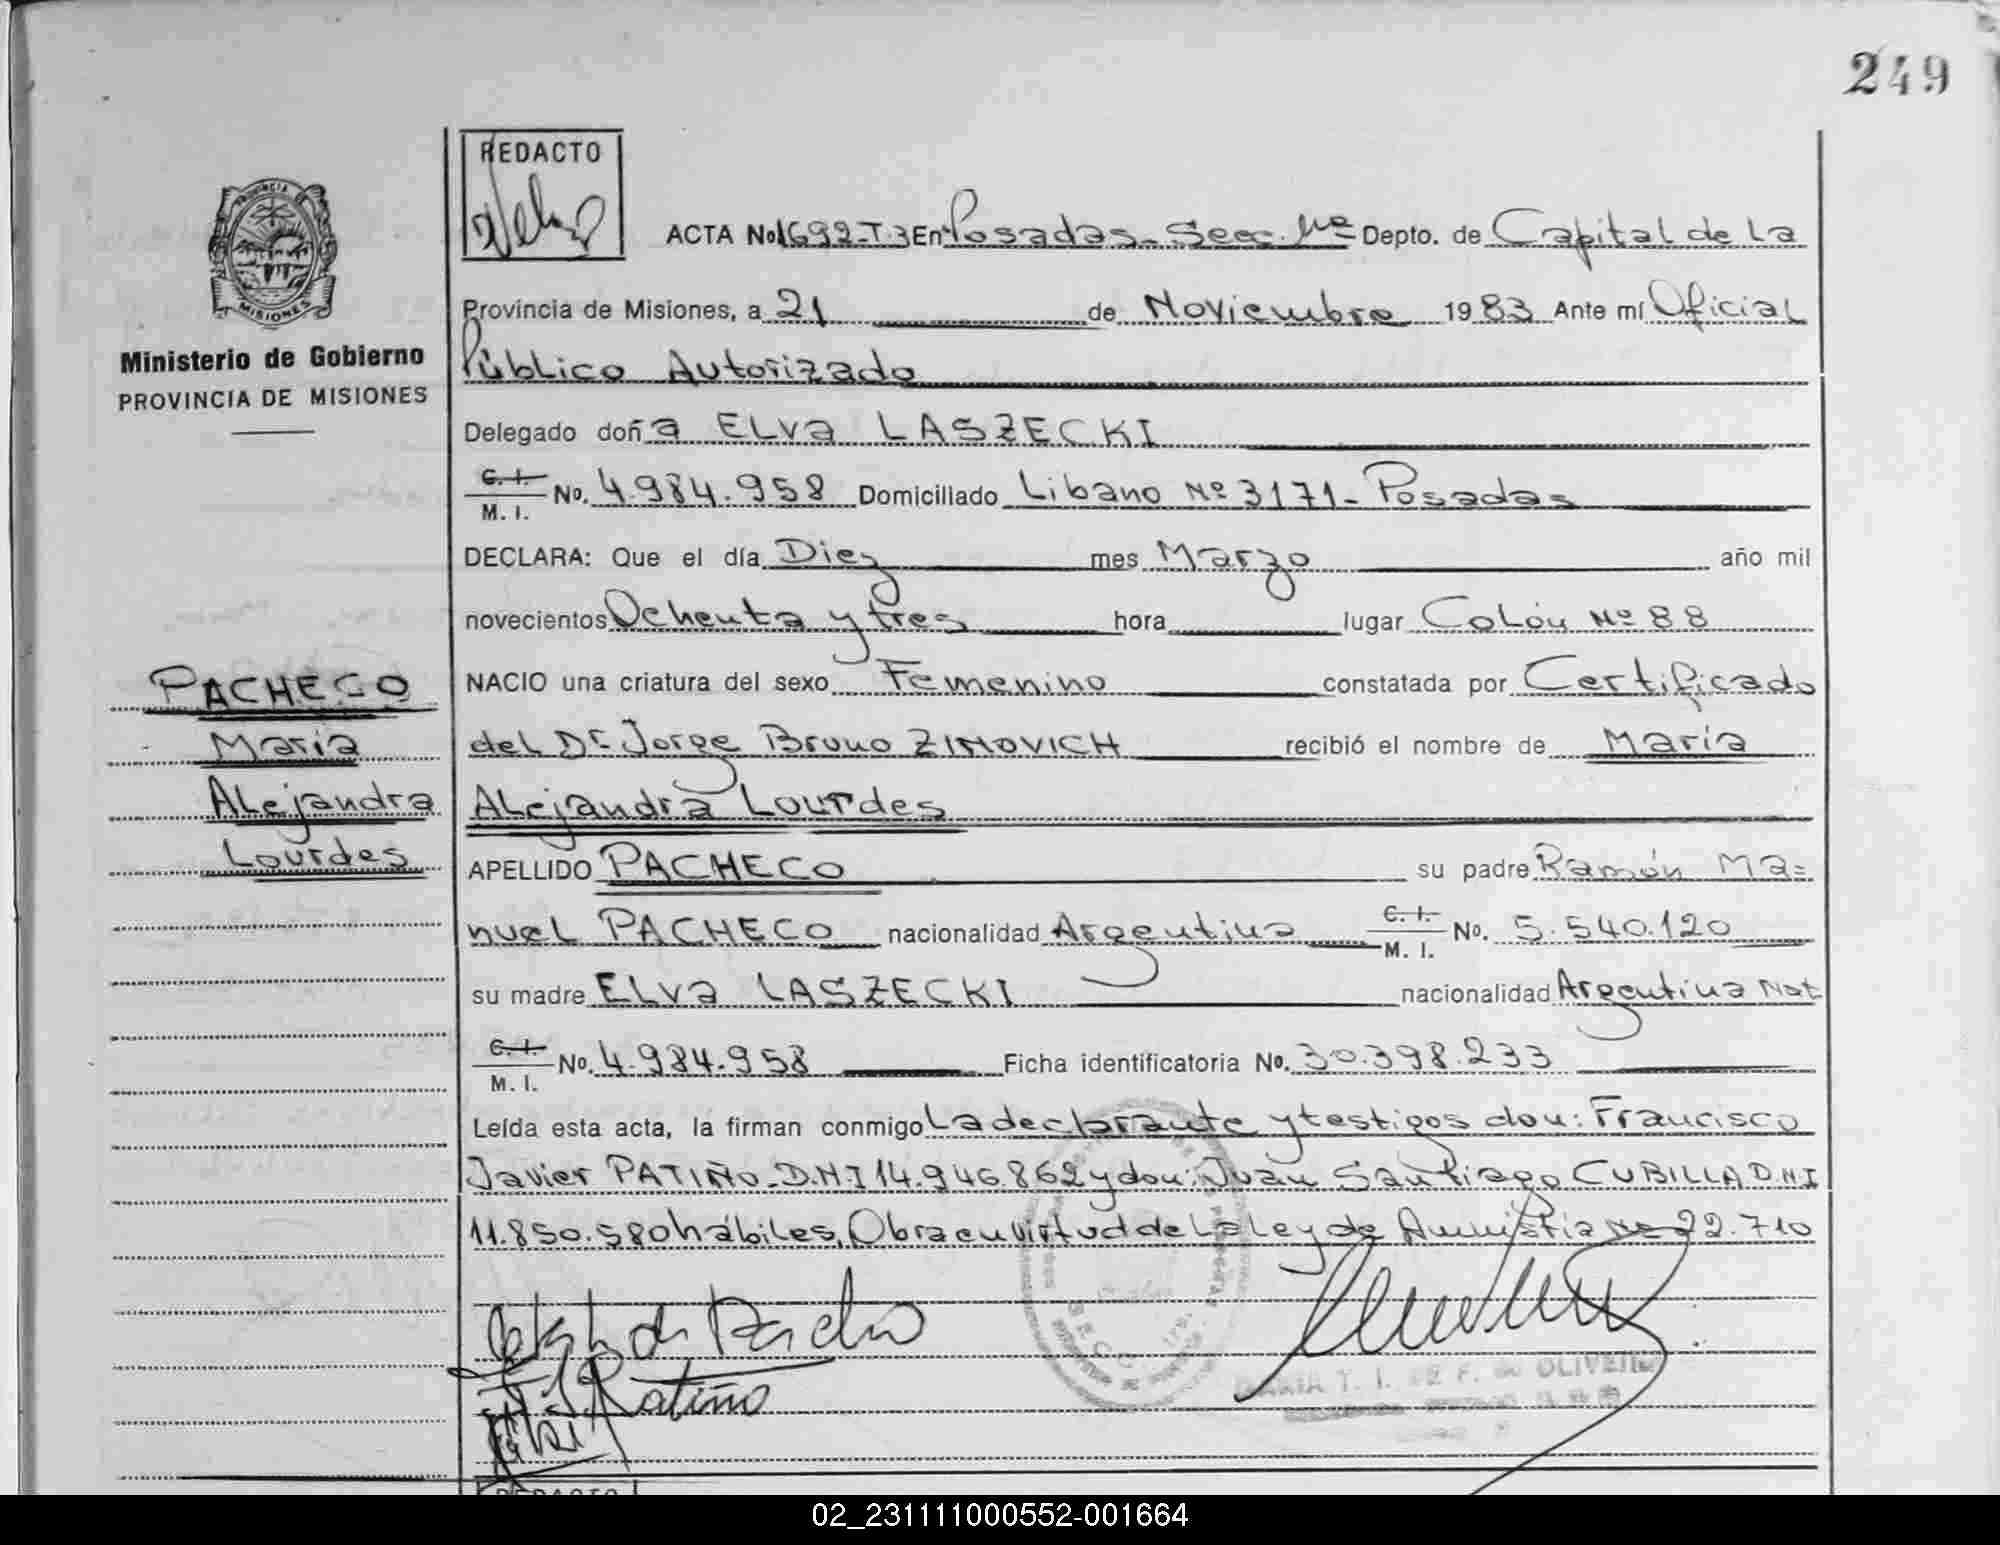 249
REDACTO
PROVINCIA DE
MISIONES
Ministerio de Gobierno
PROVINCIA DE MISIONES
ACTA No 1692-T.3 En Posadas- Secc. 1ra Depto. de Capital de La
Provincia de Misiones, a 21 de Noviembre 1983 Ante mí Oficial
Público Autorizado
Delegado doña ELva LASZECKI
C. I. M. I. No. 4.984.958 Domiciliado Libano Nº 3171- Posadas
DECLARA: Que el día Diez mes Marzo año mil
novecientos Ochenta y tres hora lugar Colón Nº 88
NACIO una criatura del sexo Femenino constatada por Certificado
del Dr. Jorge Bruno ZIMOVICH recibió el nombre de María
Alejandra Lourdes
APELLIDO PACHECO su padre Ramón Ma=
nuel PACHECO nacionalidad Argentina C. I. M. I. No. 5.540.120
su madre ELva LASZECKI nacionalidad Argentina Nat
C. I. M. I. No. 4.984.958 Ficha identificatoria No. 30.398.233
Leída esta acta, la firman conmigo La declarante y testigos don: Francisco
Javier PATIÑO-D.N.I 14.946.862 y don: Juan Santiago CUBILLA D.N.I
11.850.580 hábiles. Obra en virtud de La Ley de Amnistia Nº 22.710
PACHECO
María
Alejandra
Lourdes
de Pacheco
Patiño
MARIA T. I. DE F. de OLIVEIRA
REDACTO
02_231111000552-001664